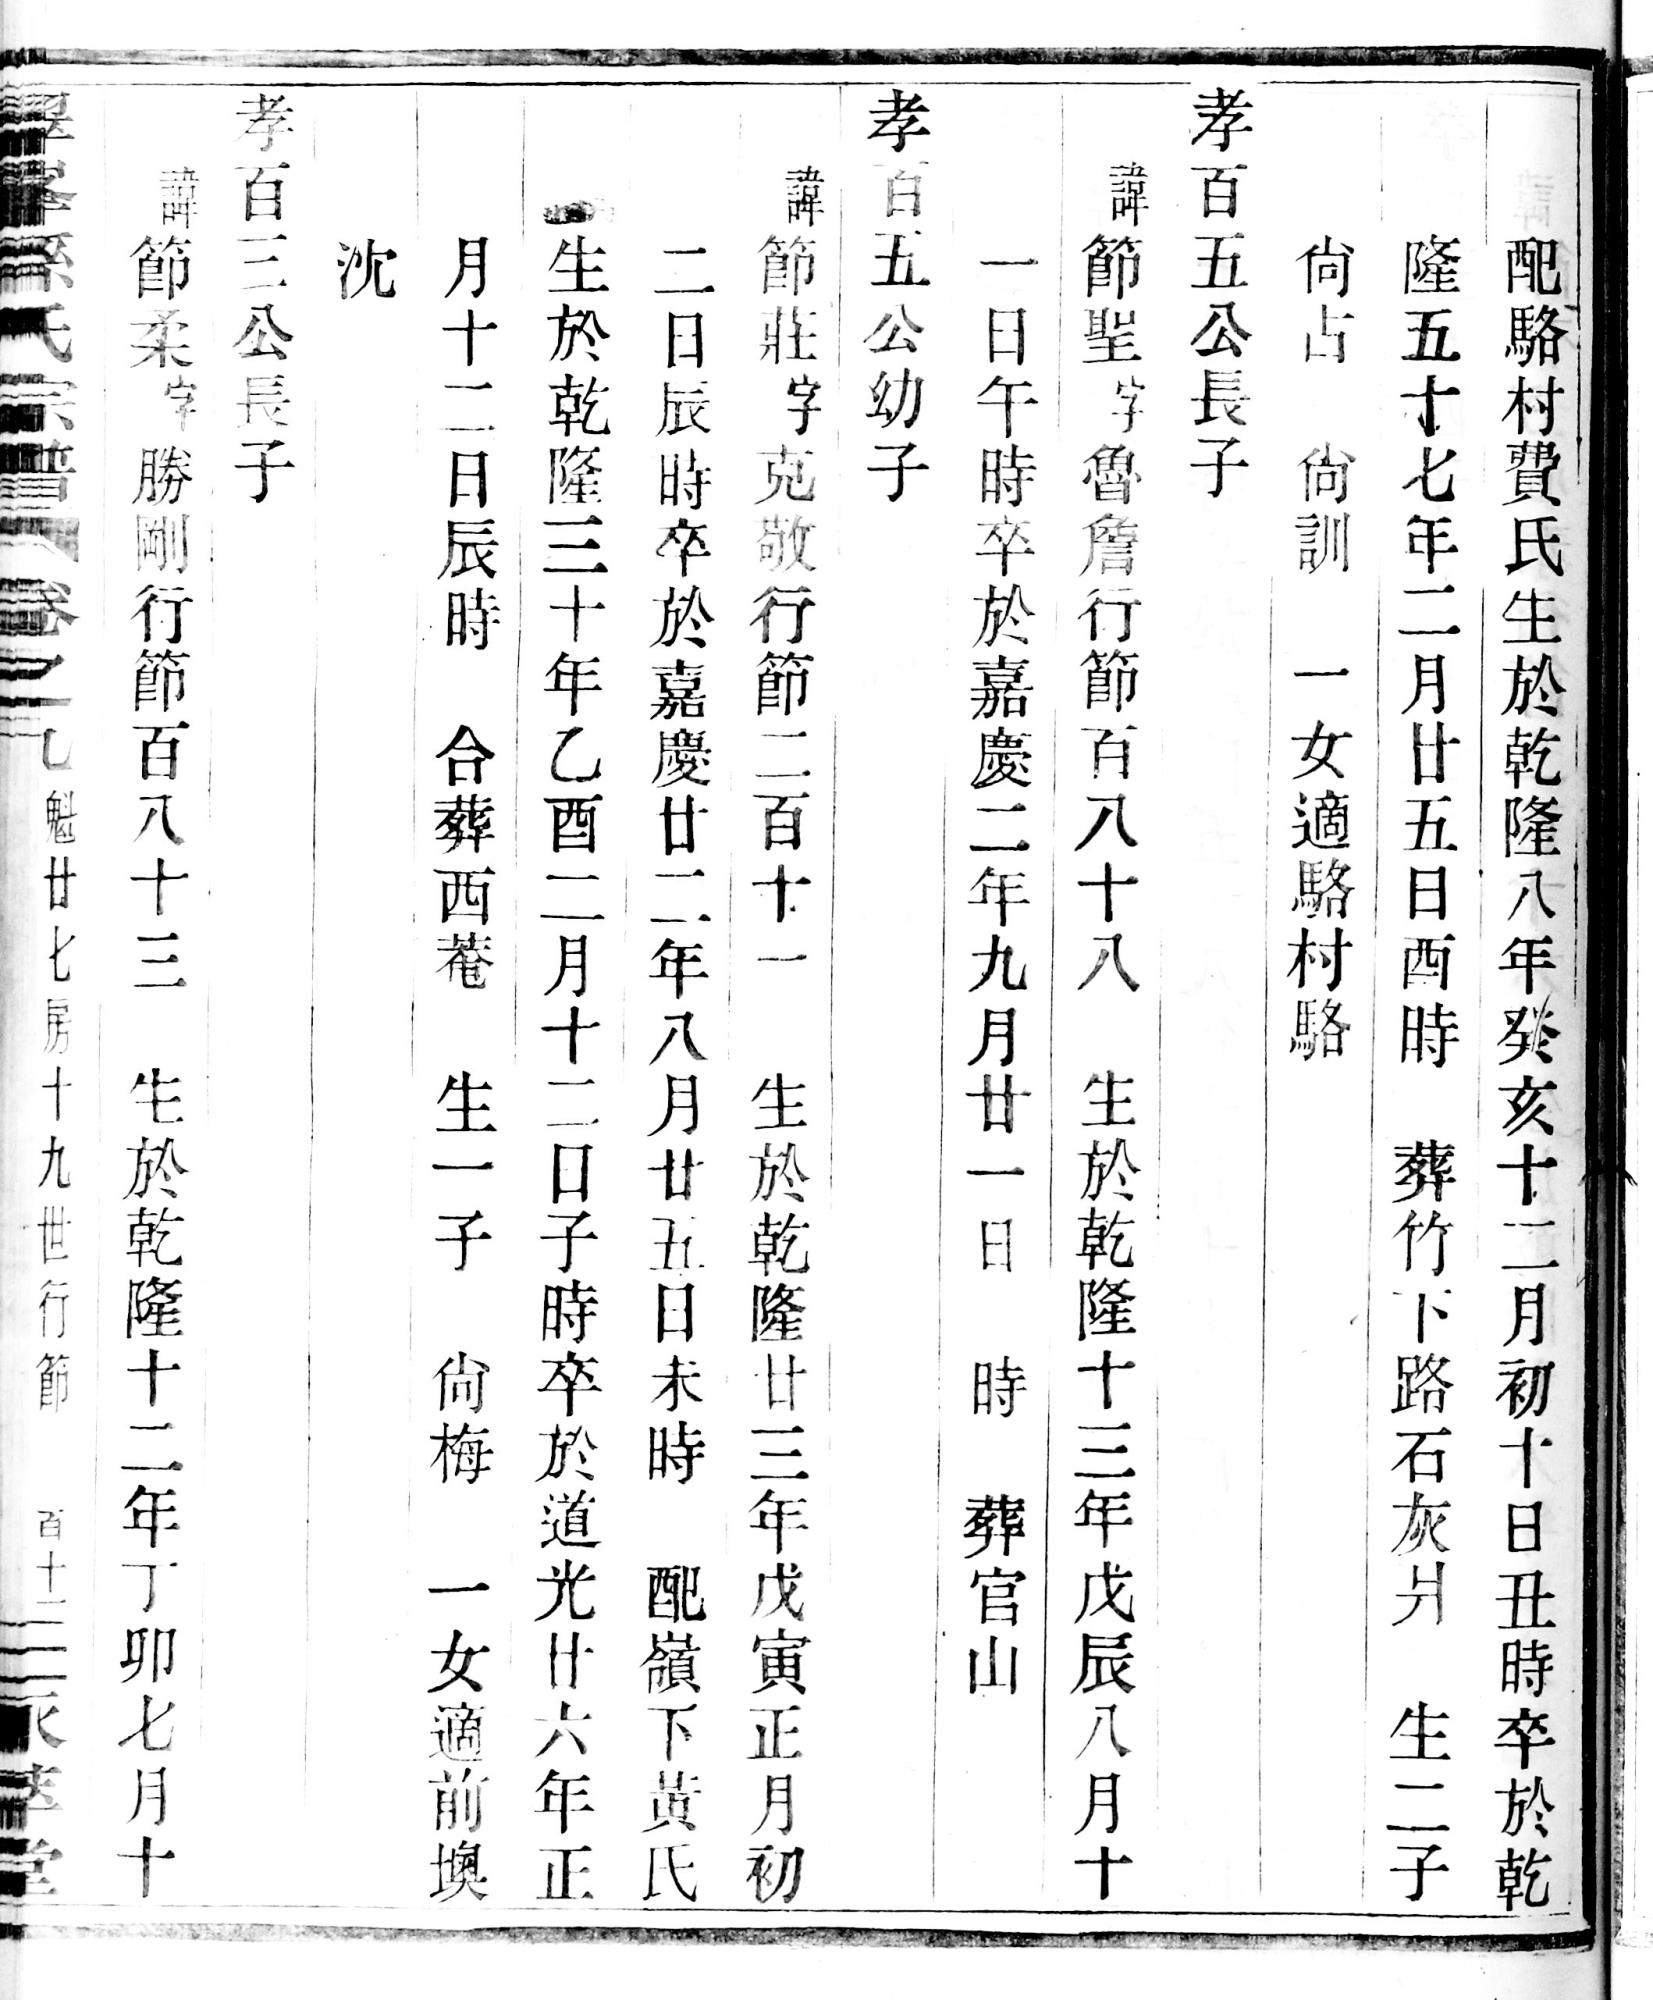 配駱村費氏生於乾隆八年癸亥十二月初十日丑時卒於乾
隆五十七年二月廿五日酉時 葬竹下路石灰爿 生二子
尙占 尙訓 一女適駱村駱
孝百五公長子
諱節聖字魯詹行節百八十八 生於乾隆十三年戊辰八月十
一日午時卒於嘉慶二年九月廿一日 時 葬官山
孝百五公幼子
諱節莊字克敬行節二百十一 生於乾隆廿三年戊寅正月初
二日辰時卒於嘉慶廿二年八月廿五日未時 配嶺下黃氏
生於乾隆三十年乙酉二月十二日子時卒於道光廿六年正
月十二日辰時 合葬西菴 生一子 尙梅 一女適前墺
沈
孝百三公長子
諱節柔字勝剛行節百八十三 生於乾隆十二年丁卯七月十
孫氏宗譜 卷之九 魁廿七房十九世行節 百十二 永思堂